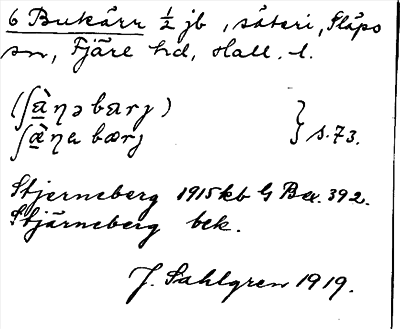 6 Bukärr ½ jb, säteri, Släps
sn, Fjäre hd, Hall. l.
(ʃæ̀ŋə bærj)
ʃæ̀ŋa bærj } s. 73.
Stjerneberg 1915 kb G Bex. 392.
Stjärneberg bek.
J. Sahlgren 1919.